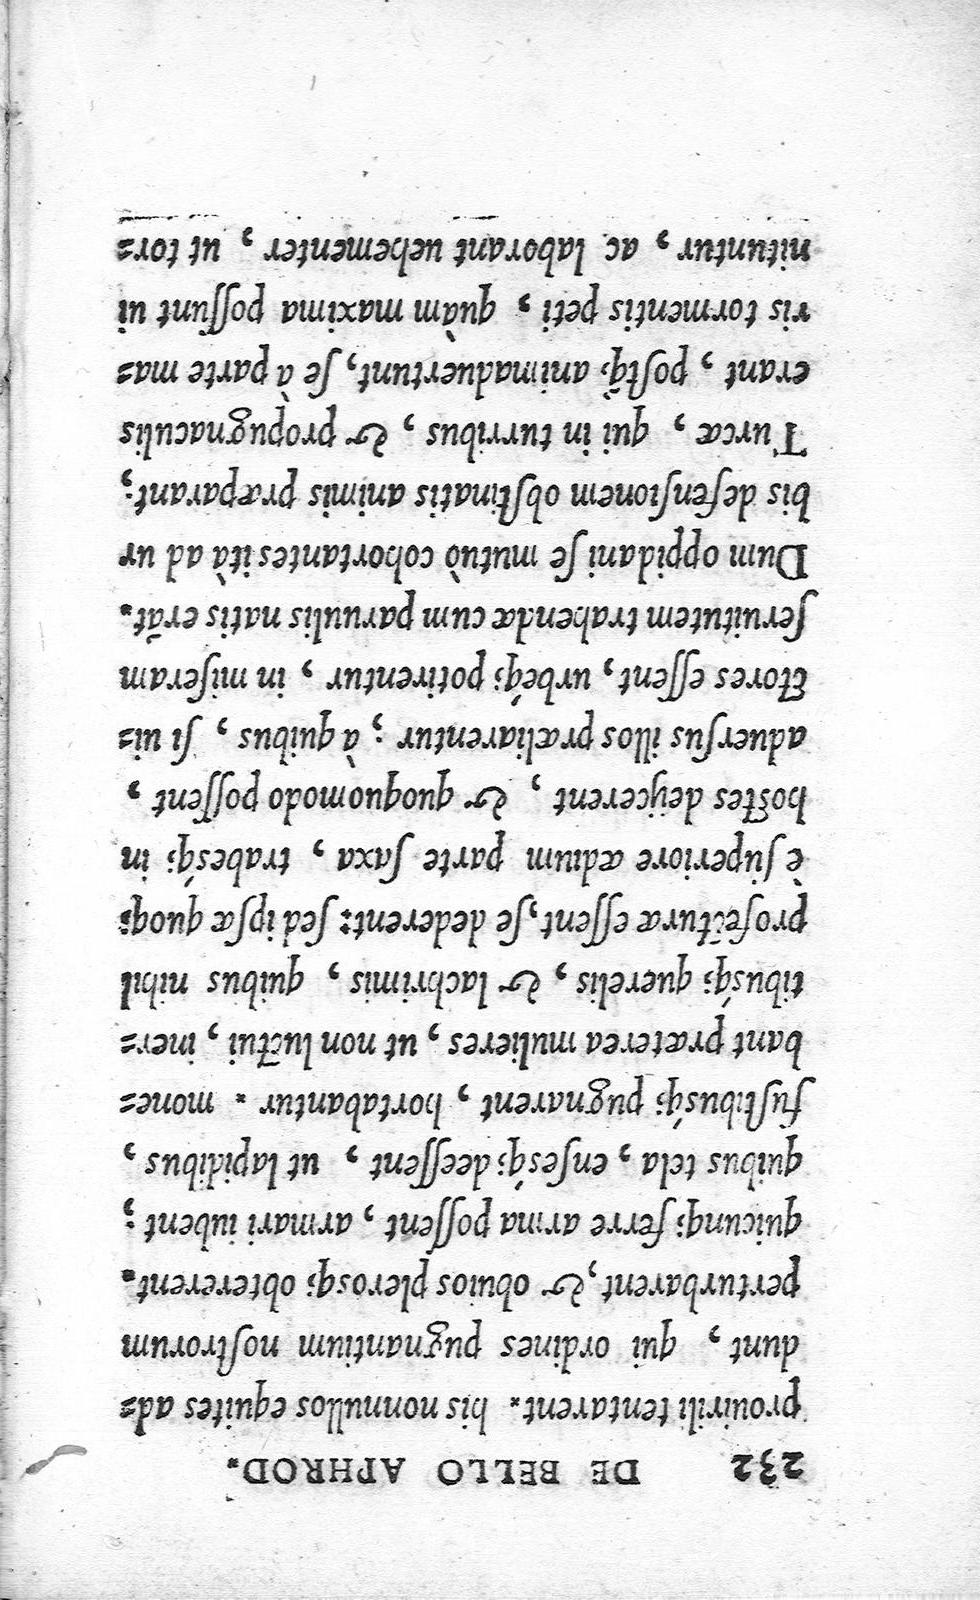 232 DE BELLO APHROD.
prouirili tentarent. his nonnullos equites ad=
dunt, qui ordines pugnantium noſtrorum
perturbarent, & obuios pleroſq; obtererent.
quicunq; ferre arma poſſent, armari iubent;
quibus tela, enſesq́; deeſſent, ut lapidibus,
fuſtibusq́; pugnarent, hortabantur. mone=
bant præterea mulieres, ut non luctui, iner=
tibusq́; querelis, & lachrimis, quibus nihil
profecturæ eſſent, ſe dederent: ſed ipſæ quoq;
è ſuperiore ædium parte ſaxa, trabesq́; in
hoſtes deijcerent, & quoquomodo poſſent,
aduerſus illos præliarentur; à quibus, ſi ui=
ctores eſſent, urbéq; potirentur, in miſeram
ſeruitutem trahendæ cum paruulis natis erāt.
Dum oppidani ſe mutuò cohortantes ità ad ur
bis defenſionem obſtinatis animis præparant;
Turcæ, qui in turribus, & propugnaculis
erant, poſtq̃; animaduertunt, ſe à parte ma=
ris tormentis peti, quàm maxima poſſunt ui
nituntur, ac laborant uehementer, ut tor=